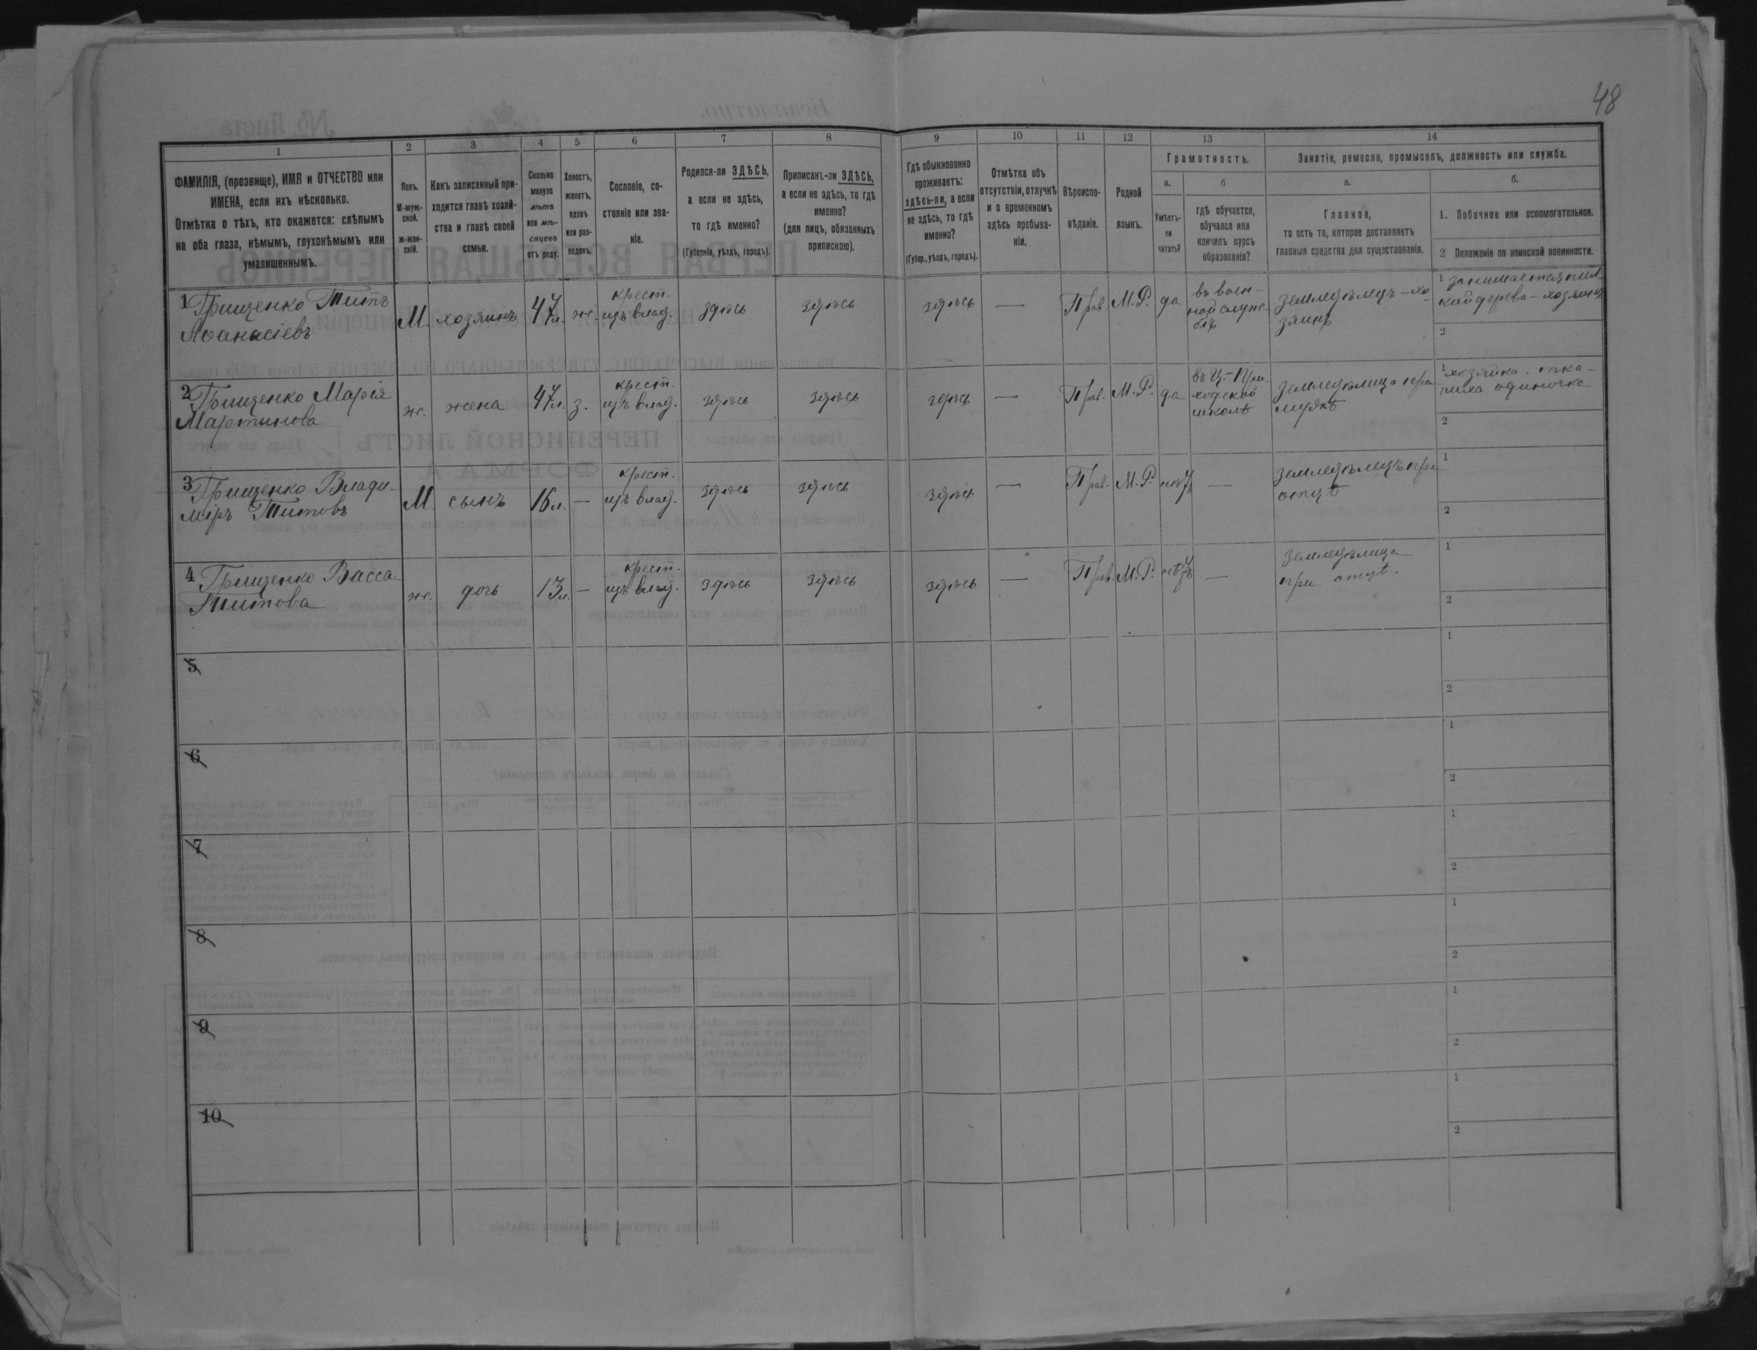 48
1 2 3 4 5 6 7 8 9 10 11 12 13 14
ФАМИЛІЯ, (прозвище), ИМЯ и ОТЧЕСТВО или
ИМЕНА, если ихъ нѣсколько.
Отмѣтка о тѣхъ, кто окажется: слѣпымъ
на оба глаза, нѣмымъ, глухонѣмымъ или
умалишеннымъ.
Полъ.
М-муж-
ской.
Ж-жен-
скій.
Какъ записанный при-
ходится главѣ хозяй-
ства и главѣ своей
семьи.
Сколько
минуло
лѣтъ
или мѣ-
сяцевъ
отъ роду.
Холостъ,
женатъ,
вдовъ
или раз-
веденъ.
Сословіе, со-
стояніе или зва-
ніе.
Родился-ли ЗДѢСЬ,
а если не здѣсь,
то гдѣ именно?
(Губернія, уѣздъ, городъ).
Приписанъ-ли ЗДѢСЬ,
а если не здѣсь, то гдѣ
именно?
(для лицъ, обязанныхъ
припискою).
Гдѣ обыкновенно
проживаетъ:
здѣсь-ли, а если
не здѣсь, то гдѣ
именно?
(Губер., уѣздъ, городъ).
Отмѣтка объ
отсутствіи, отлучкѣ
и о временномъ
здѣсь пребыва-
ніи.
Вѣроиспо-
вѣданіе.
Родной
языкъ.
Грамотность.
а.
Умѣетъ-
ли
читать?
б
гдѣ обучается,
обучался или
кончилъ курсъ
образованія?
Занятія, ремесло, промыселъ, должность или служба.
а.
Главное,
то есть то, которое доставляетъ
главныя средства для существованія.
б.
1. Побочное или вспомогательное.
2 Положеніе по воинской повинности.
1 Грищенко Титъ
Аѳанасіевъ
М. хозяинъ 47 л. ж.
крест.
изъ влад.
здѣсь здѣсь здѣсь — Прав. М.Р. да
въ воен-
ной служ-
бѣ
земледѣлецъ - хо-
зяинъ
1
кій дерева - хозяинъ
2
2 Грищенко Марія
Мартинова
ж. жена 47 л. з.
крест.
изъ влад.
здѣсь здѣсь здѣсь — Прав. М.Р. да
въ Ц.-При
ходской
школѣ
земледѣлица при
мужѣ
1 хозяйка - тка-
чиха одиночка
2
3 Грищенко Влади-
міръ Титовъ
М. сынъ 16 л. —
крест.
изъ влад.
здѣсь здѣсь здѣсь — Прав. М.Р. нѣтъ —
земледѣлецъ при
отцѣ
1
2
4 Грищенко Васса
Титова
ж. дочь 13 л. —
крест.
изъ влад.
здѣсь здѣсь здѣсь — Прав. М.Р. нѣтъ —
земледѣлица
при отцѣ.
1
2
5
1
2
6
1
2
7
1
2
8
1
2
9
1
2
10
1
2